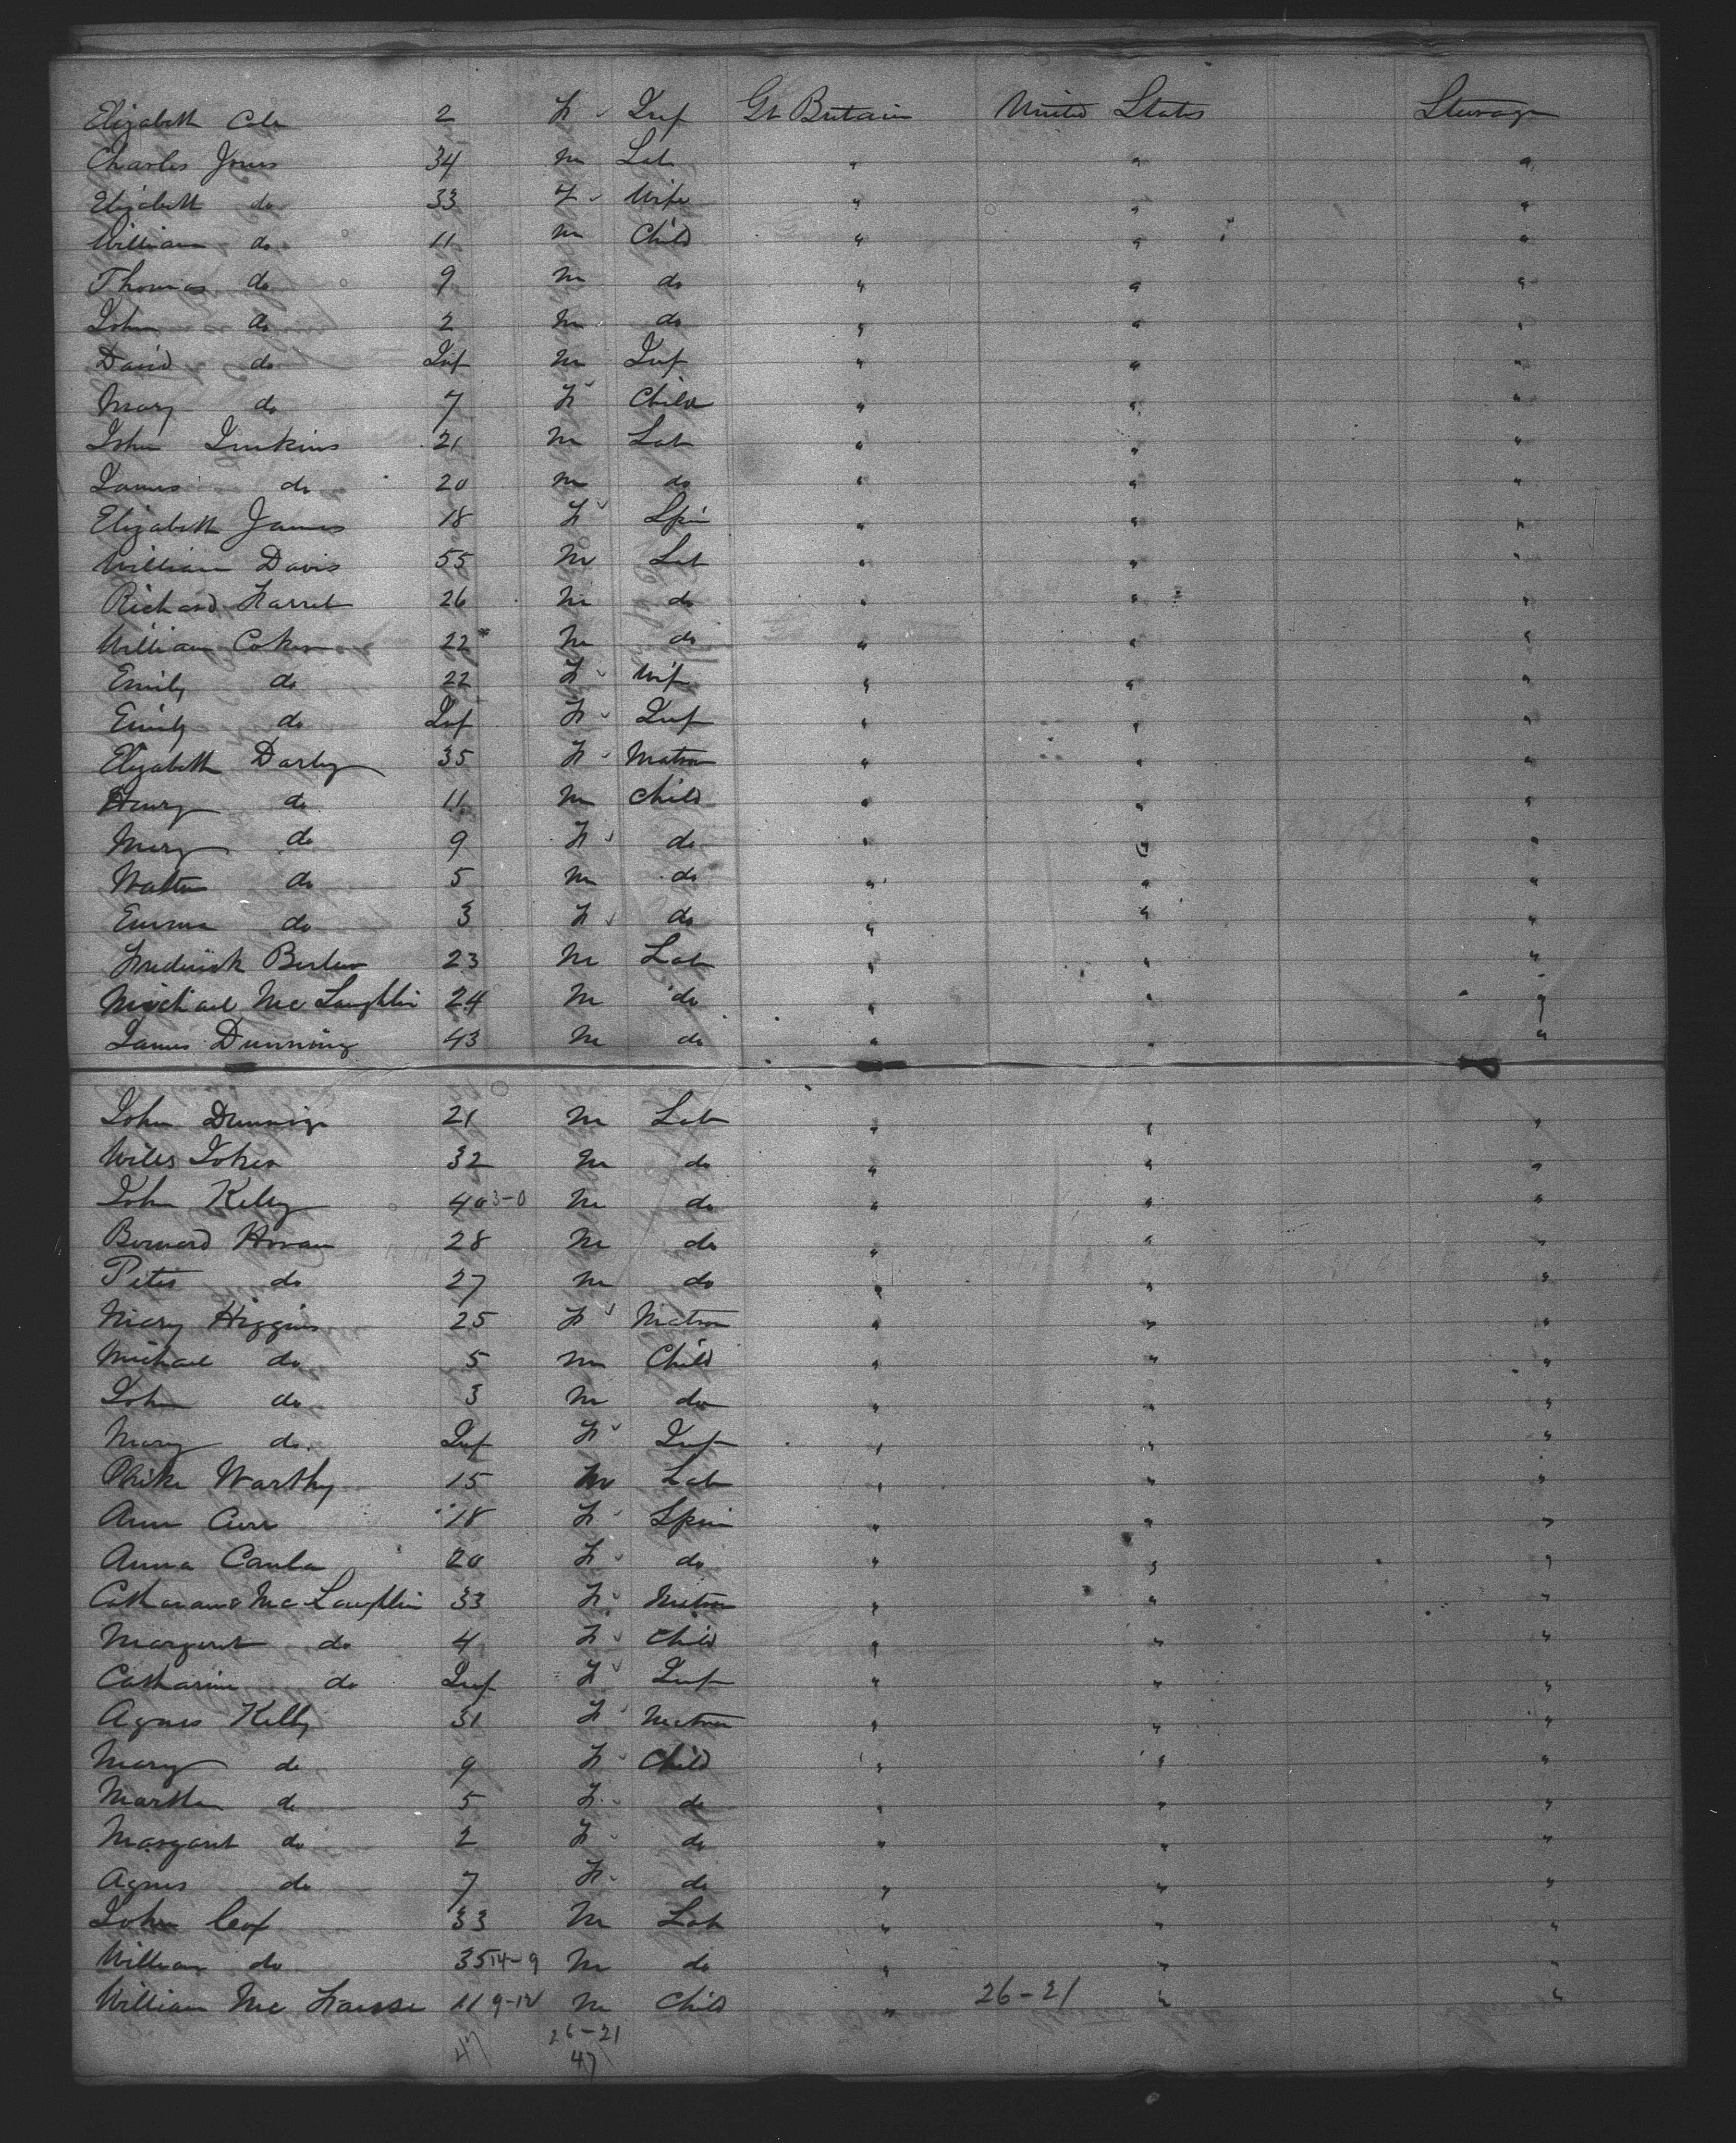 Elizabeth Cole 2 F Inf Gt Britain United States Steerage
Charles Jones 34 M Lab " " "
Elizabeth do 33 F Wife " " "
William do 11 M Child " " "
Thomas do 9 M do " " "
John do 2 M do " " "
David do Inf M Inf " " "
Mary do 7 F Child " " "
John Jenkins 21 M Lab " " "
James do 20 M do " " "
Elizabeth James 18 F Spin " " "
William Davis 55 M Lab " " "
Richard Farrel 26 M do " " "
William Coken 22 M do " " "
Emily do 22 F Wife " " "
Emily do Inf F Inf " " "
Elizabeth Darby 35 F Matron " " "
Henry do 11 M Child " " "
Mary do 9 F do " " "
Walter do 5 M do " " "
Emma do 3 F do " " "
Frederick 23 M Lab " " "
Michael McLaughlin 24 M do " " "
James Dunning 43 M do " " "
John Dunning 21 M Lab " " "
32 M do " " "
John Kelly 40 3-0 M do " " "
Bernard Horan 28 M do " " "
Peter do 27 M do " " "
Mary Higgins 25 F Matron " " "
Michael do 5 M Child " " "
John do 3 M do " " "
Mary do. Inf F Inf " " "
Warthy 15 M Lab " " "
Ann 18 F Spin " " "
Anna 20 F do " " "
McLaughlin 33 F Matron " " "
Margaret do 4 F Child " " "
Catharine do Inf F Inf " " "
Agnes Kelly 31 F Matron " " "
Mary do 9 F Child " " "
Martha do 5 F do " " "
Margaret do 2 F do " " "
Agnes do 7 F do " " "
John Cox 33 M Lab " " "
William do 35 14-9 M do " " "
William Mc 11 9-12 M Child " 26-21 " "
47 26-21
47